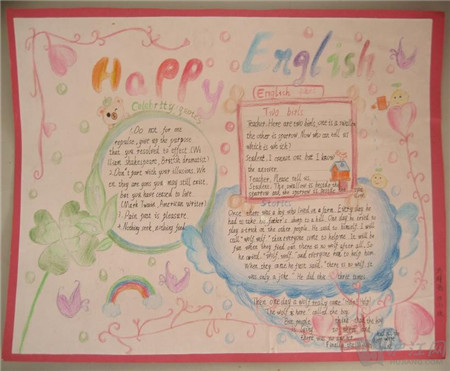 Happy English
Celebrity quotes
1. Do not for one
repulse, give up the purpose
that you resolved to effect (Wi
lliam Shakespeare, British dramatist)
2. Don't part with your illusions. Wh
en they are gone you may still exist,
but you have ceased to live.
(Mark Twain, American writer)
3. Pain past is pleasure.
4. Nothing seek, nothing find.
English
Two birds
Teacher: Here are two birds, one is a swallow
the other is sparrow. Now who can tell us
which is which?
Student: I cannot but I know
the answer.
Teacher: Please tell us.
Student: The swallow is beside the
sparrow and the sparrow is beside the
Stories
Once there was a boy who lived on a farm. Every day he
had to take his father's sheep to a hill. One day he
play a trick on the other people. He said to himself, I will
call "wolf, wolf" then everyone come to help me. It will be
fun when they find out there is no wolf after all. So
he cried, "wolf, wolf" and everyone ran to help him.
When they came he just said, "there is no wolf, it
was only a joke." He did the three times.
Then one day a wolf really came. "Help, help!
The wolf is here" called the boy.
But people the boy
there was no